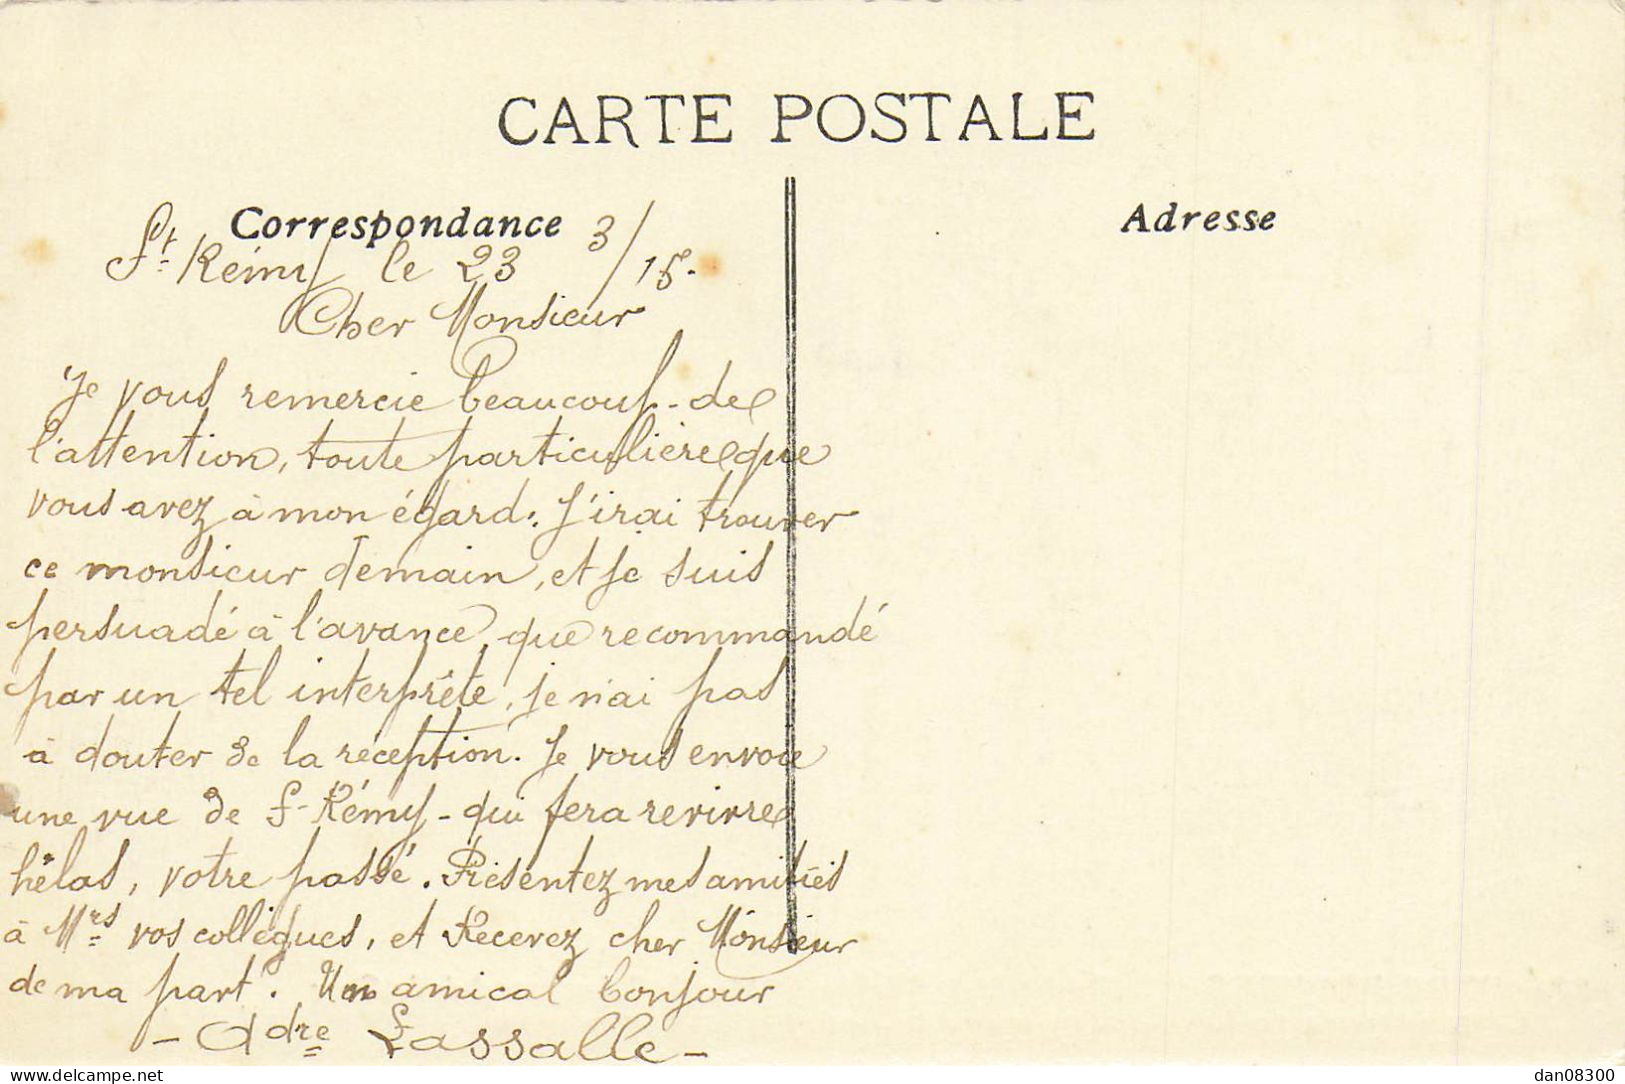 CARTE POSTALE
Correspondance
Adresse
St Rémy le 23 3/15.
Cher Monsieur
Je vous remercie beaucoup de
l'attention, toute particulière que
vous avez à mon égard. J'irai trouver
ce monsieur demain, et je suis
persuadé à l'avance, que recommandé
par un tel interprête, je n'ai pas
à douter de la réception. Je vous envoie
une vue de St Rémy - qui fera revivre
hélas, votre passé. Présentez mes amitiés
à Mrs vos collègues, et Recevez cher Monsieur
de ma part. Un amical bonjour
- Adre Lassalle -
delcampe.net
dan08300